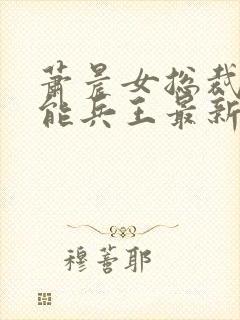 萧晨女总裁
能兵王最新
穆薏耶